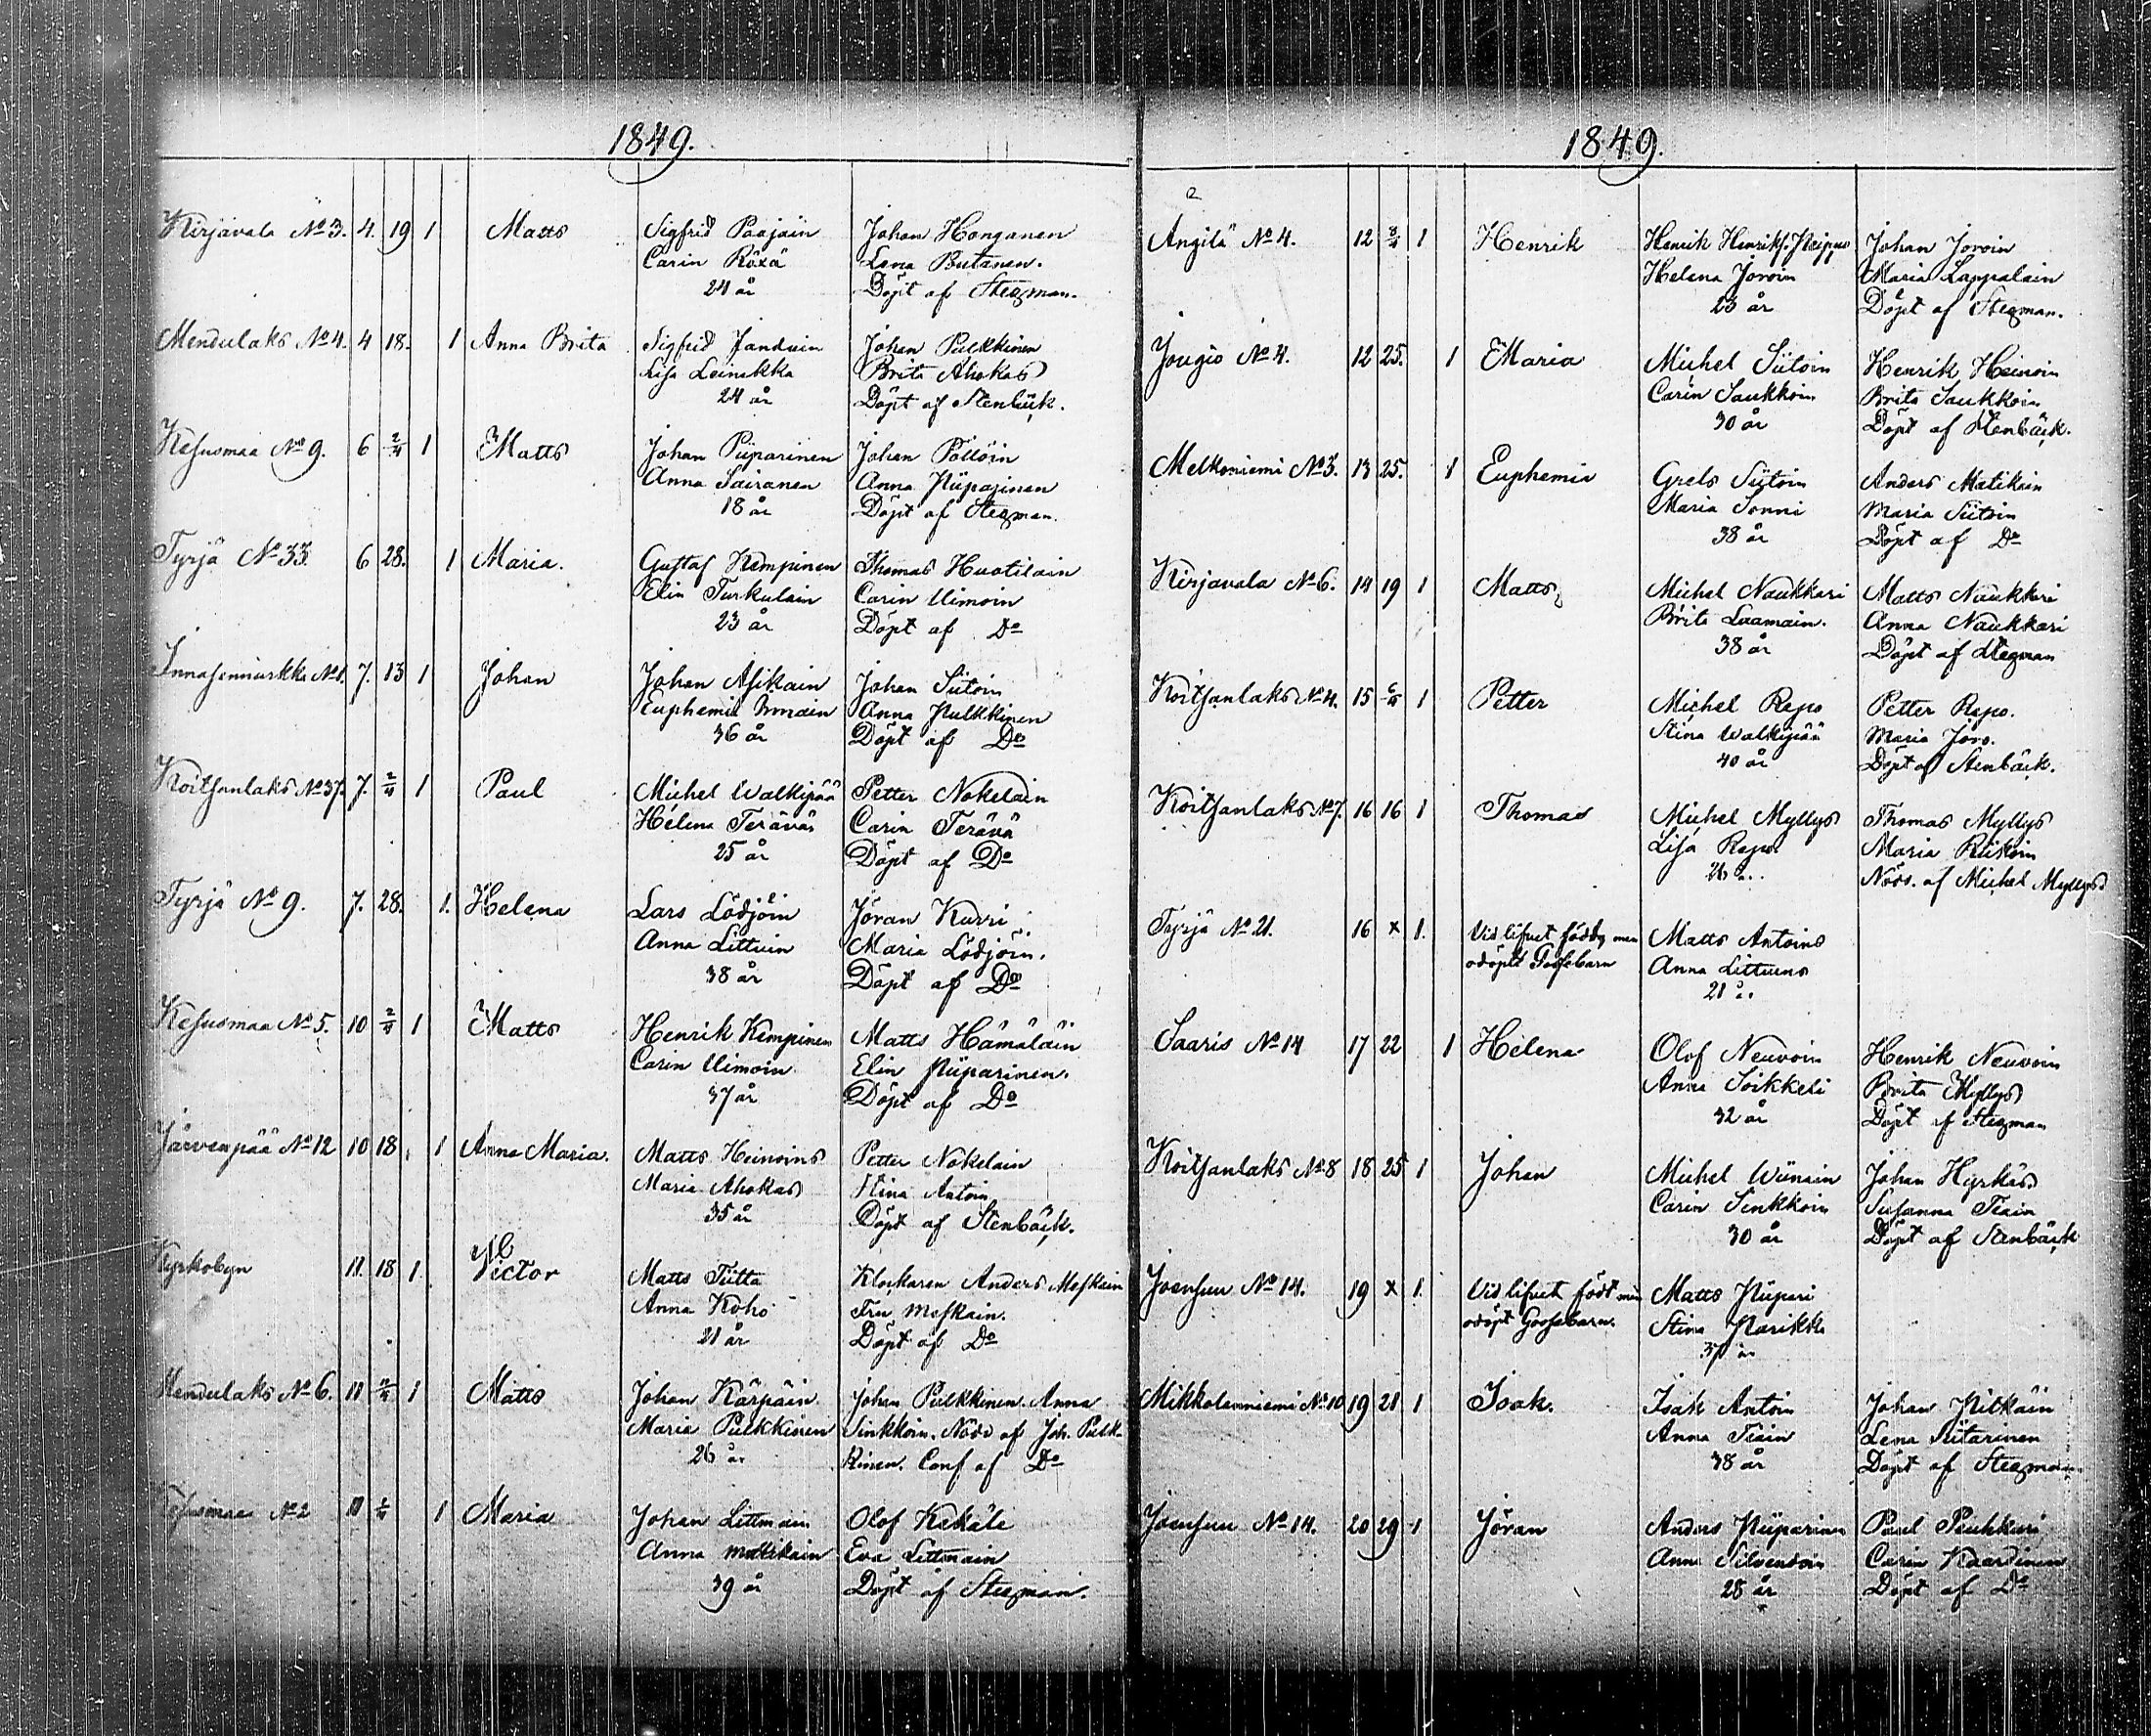 1849.
Kirjavala No 3. 4. 19 1 Matts Sigfrid Paajain Johan Honganen
Carin Röxä Lena Butanen.
24 år Döpt af Stegman.
Mendulaks No 4. 4 18. 1 Anna Brita Sigfrid Janduin Johan Pulkkinen
Lisa Leinakka Brita Ahokas
24 år Döpt af Stenbäck.
Kesusmaa No 9. 6 2/4 1 Matts Johan Piiparinen Johan Pöllöin
Anna Sairanen Anna Piiparinen
18 år Döpt af Stegman.
Tyrjä No 33. 6 28. 1 Maria. Gustaf Kempinen Thomas Huotilain
Elin Turkulain Carin Uimoin
23 år Döpt af Do
No 1. 7. 13 1 Johan Johan Asikain Johan Siitoin
Euphemia Anna Pulkkinen
36 år Döpt af Do
Koitsanlaks No 37. 7. 2/4 1 Paul Michel Walkipää Petter Nokelain
Helena Teräväs Carin Terävä
25 år Döpt af Do
Tyrjä No 9. 7. 28. 1. Helena Lars Lödjöin Jöran Kurri
Anna Littuin Maria Lödjöin.
38 år Döpt af Do
Kesusmaa No 5. 10 2/4 1 Matts Henrik Kempinen Matts Hämäläin
Carin Uimoin Elin Piiparinen.
37 år Döpt af Do
Järvenpää No 12 10 18. 1 Anna Maria. Matts Heinoins Petter Nokelain
Maria Ahokas Stina Antoin
35 år Döpt af Stenbäck.
Kyrkobyn 11. 18 1. Victor Matts Tiitta Klockaren Anders Meskain
Anna Koho Fru Meskain.
21 år Döpt af Do
Mendulaks No 6. 11 2/4 1 Matts Johan Kärpäin Johan Pulkkinen. Anna
Maria Pulkkinen Sinkkoin. Nöds af Joh. Pulk-
26 år kinen. Conf af Do
No 2 11 1 Maria Johan Littmain Olof Kekäle
Anna Mattikain Eva Littmain
39 år Döpt af Stegman.
1849.
Ängilä No 4. 12 1 Henrik Henrik Henriks. Johan Joroin
Helena Joroin Maria Lappalain
23 år Döpt af Stegman.
Jougio No 4. 12 25. 1 Maria Michel Siitoin Henrik Heinoin
Carin Saukkoin Brita Saukkoin
30 år Döpt af Stenbäck.
Melkoniemi No 3. 13 25. 1 Euphemia Grels Siitoin Anders Matikain
Maria Sonni Maria Siitoin
38 år Döpt af Do
Kirjavala No 6. 14 19 1 Matts Michel Naukkari Matts Naukkari
Brita Laamain. Anna Naukkari
38 år Döpt af Stegman
Koitsanlaks No 4. 15 1 Petter Michel Repo Petter Repo.
Stina Walkipää Maria Joro.
40 år Döpt af Stenbäck.
Koitsanlaks No 7. 16 16 1 Thomas Michel Myllys Thomas Myllys
Lisa Repo Maria Riikoin
26 Nöds. af Michel Myllys
Tyrjä No 21. 16 x 1. Vid lifvet född men Matts Antoins
odöpt Gossebarn Anna Littuens
21 år
Saaris No 14 17 22 1 Helena Olof Neuvoin Henrik Neuvoin
Anna Soikkeli Brita Myllys
32 år Döpt af Stegman
Koitsanlaks No 8 18 25 1 Johan Michel Wänain Johan Hyrkäs
Carin Sinkkoin Susanna Tiain
30 år Döpt af Stenbäck
Joensuu No 14. 19 x 1. Vid lifvet född men Matts Piipari
odöpt Gossebarn. Stina Parikka
37 år
Mikkolanniemi No 10 19 21 1 Isak. Isak Antoin Johan Pitkäin
Anna Tiain Lena Ritarinen
38 år Döpt af Stegman
Joensuu No 14. 20 29 1 Jöran Anders Piiparinen Paul Peuhkuri
Anna Silvendoin Carin Kaardinen
28 år Döpt af Do